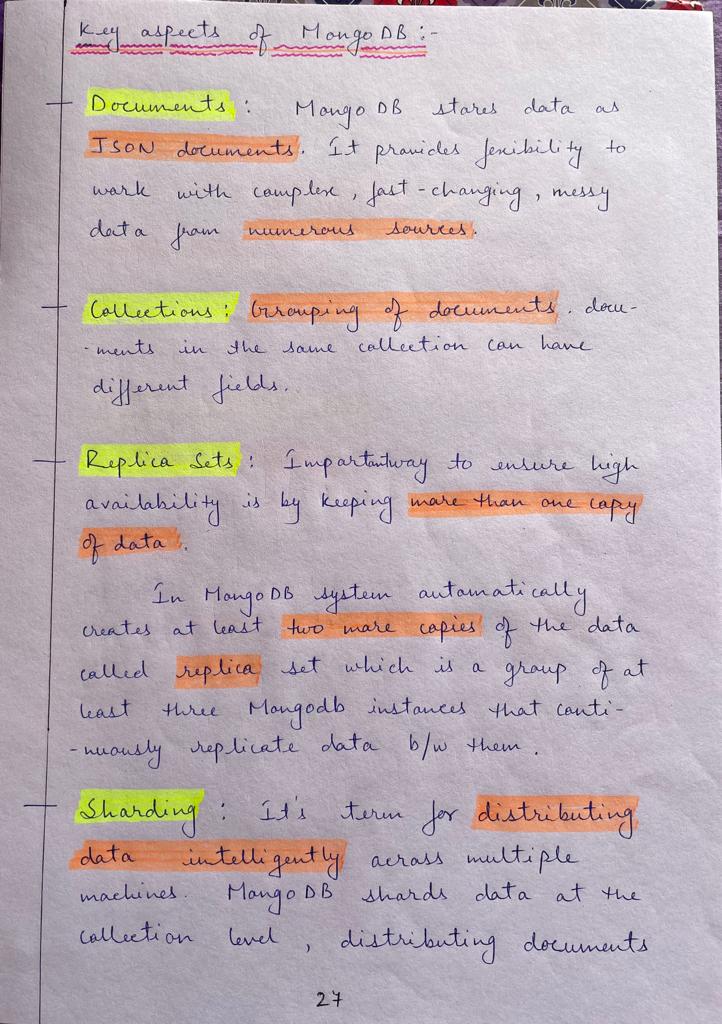 Key aspects of MongoDB :-
Documents : MongoDB stores data as
JSON documents. It provides fexibility to
work with complex, fast-changing, messy
data from numerous sources.
Collections : Grouping of documents. docu-
-ments in the same collection can have
different fields.
Replica Sets : Importantway to ensure high
availability is by keeping more than one copy
of data.
In MongoDB system automatically
creates at least two more copies of the data
called replica set which is a group of at
least three Mongodb instances that conti-
-nuously replicate data b/w them.
Sharding : It's term for distributing
data intelligently across multiple
machines. MongoDB shards data at the
collection level, distributing documents
27